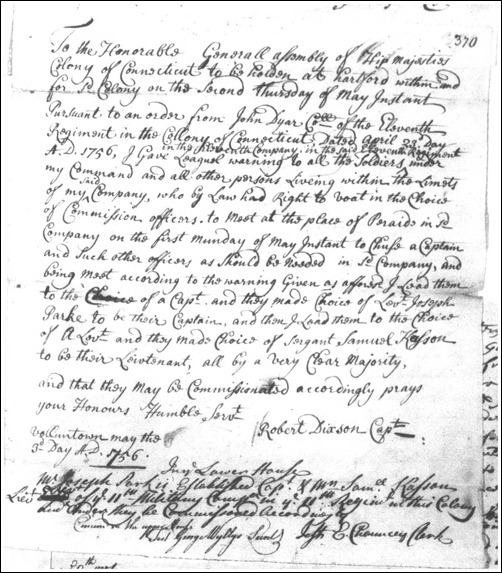 370
To the Honorable Generall assembly of His Majesties
Colony of Connecticut to be holden at Hartford within and
for Sd Colony on the Second Thursday of May Instant
Pursuant to an order from John Dyar Coll of the Eleventh
Regiment in the Colony of Connecticut Dated April 23 Day
in the Eleventh Company in the said Eleventh Regiment
A.D. 1756, I Gave Leaguel warning to all the Soldiers under
my Command and all other persons Liveing within the Limets
of my said Company, who by Law had Right to voat in the Choice
of Commission officers. to Meet at the place of Peraide in Sd
Company on the first Munday of May Instant to Chuse a Captain
and Such other officers as Should be Needed in Sd Company, and
being meet according to the warning Given as aforesd I Lead them
to the Choice of a Capt. and they made Choice of Levt Joseph
Parke to be their Captain, and then I Lead them to the Choice
of A Levt and they made Choice of Sergant Samuel Kasson
to be their Leivtenant, all by a very Clear Majority,
and that they May be Commissionated accordingly prays
your Honours Humble Servt
Robert Dixson Capt
Volluntown may the
3d Day A.D. 1756.
In ye Lower House
Mr Joseph Park is Established Capt & Mr Samll Kasson
Lieut of ye 11th Military Compy in ye 11th Regimt in this Colony
and Order they be Commissioned accordingly
Test E Chauncey Clerk
Concurrd in the upper House
Test George Wyllys Secretr